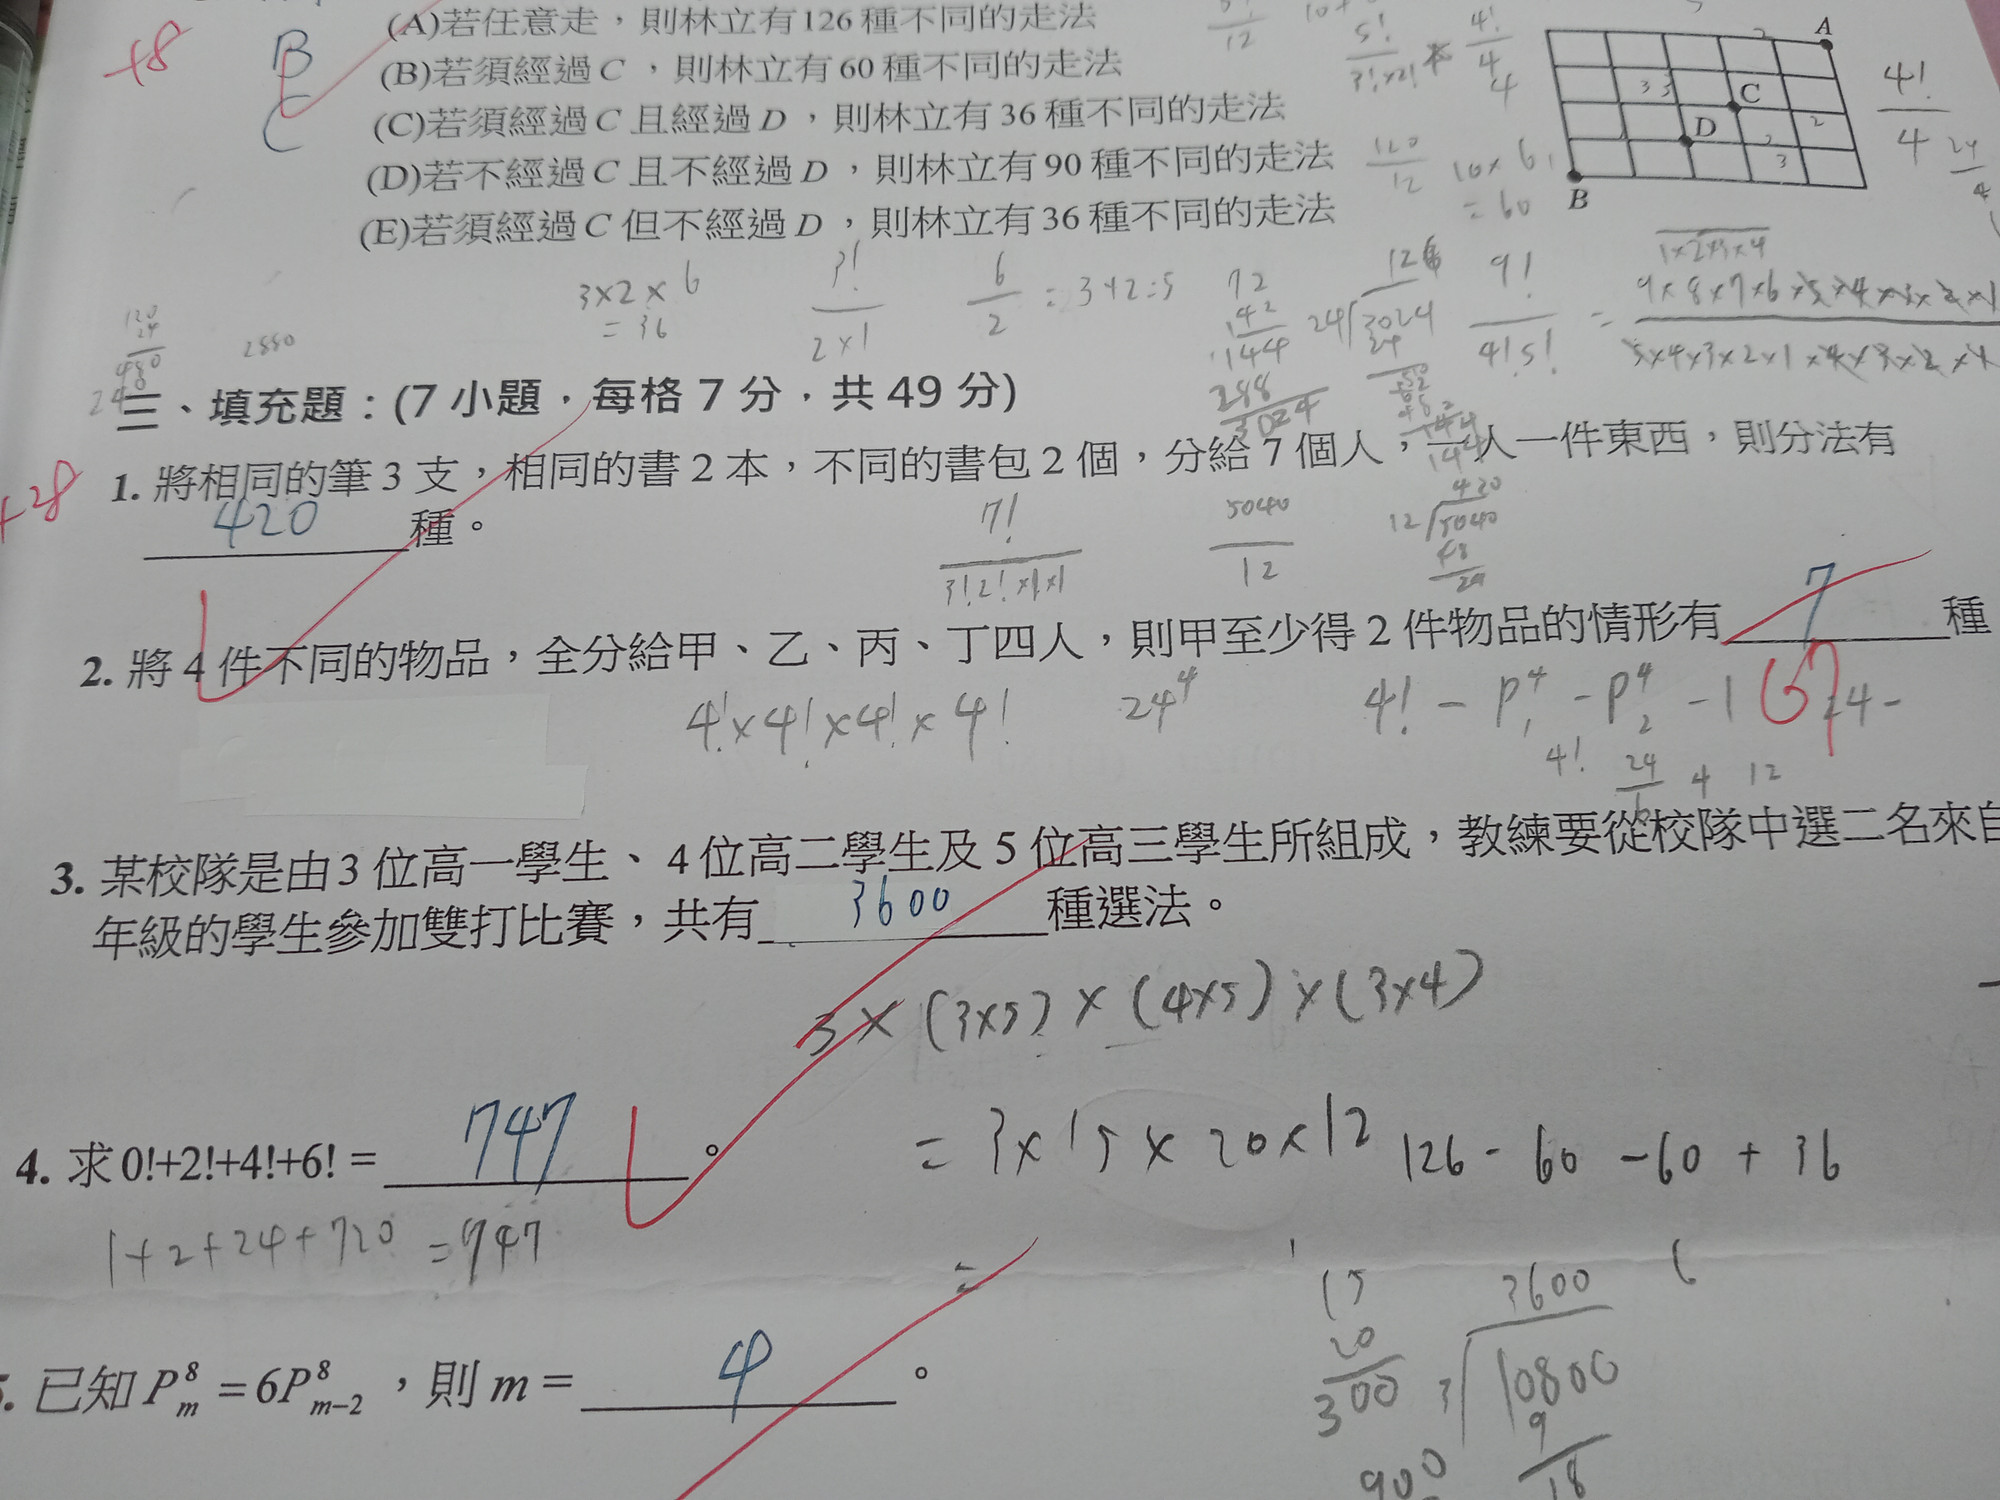 (A)若任意走，則林立有126種不同的走法
+8 B
(B)若須經過C，則林立有60種不同的走法
C
(C)若須經過C且經過D，則林立有36種不同的走法
(D)若不經過C且不經過D，則林立有90種不同的走法
(E)若須經過C但不經過D，則林立有36種不同的走法
5!/3!×2! × 4!/4
4
120/12 10×6
=60
A
C
D
B
3 3 2 2 3
4!/4 24/4
3×2×6
=36
3!/2×1
6/2 = 3+2=5
72
42
144
288
3024
126
24)3024
24
9!/4!5! = 9×8×7×6×5×4×3×2×1/5×4×3×2×1×4×3×2×1
1×2×3×4
120
24
480
240
2880
三、填充題：(7 小題，每格 7 分，共 49 分)
+28
1. 將相同的筆 3 支，相同的書 2 本，不同的書包 2 個，分給 7 個人，一人一件東西，則分法有
420 種。
7!/3!2!×1×1
5040/12
420
12)5040
48
24
2. 將 4 件不同的物品，全分給甲、乙、丙、丁四人，則甲至少得 2 件物品的情形有 7 種
4!×4!×4!×4! 24⁴ 4! - P⁴₁ - P⁴₂ - 1 67 24-
4! 24/6 4 12
3. 某校隊是由 3 位高一學生、4 位高二學生及 5 位高三學生所組成，教練要從校隊中選二名來自
年級的學生參加雙打比賽，共有 3600 種選法。
3×(3×5)×(4×5)×(3×4)
= 3×15×20×12
126-60-60+36
4. 求 0!+2!+4!+6! = 747 。
1+2+24+720 =747
=
15
20
300
900
3600
3)10800
9
18
5. 已知 P⁸ₘ = 6P⁸ₘ₋₂，則 m = 4 。